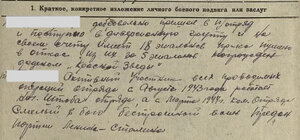 1. Краткое, конкретное изложение личного боевого подвига или заслуг
добровольно пришел в отряд
и поступил в диверсионную группу и на
своем счету имеет 18 эшелонов пуска пущено
в откос из них за 5 эшелонов награжден
орденом „Красной Звезды"
Активный участник всех проводимых
операций отряда с Августа 1943 года работает
отряда, а с Марта 1944 г. ком. отряда
Смелый в бою бесстрашный воин Предан
Партии Ленина-Сталина